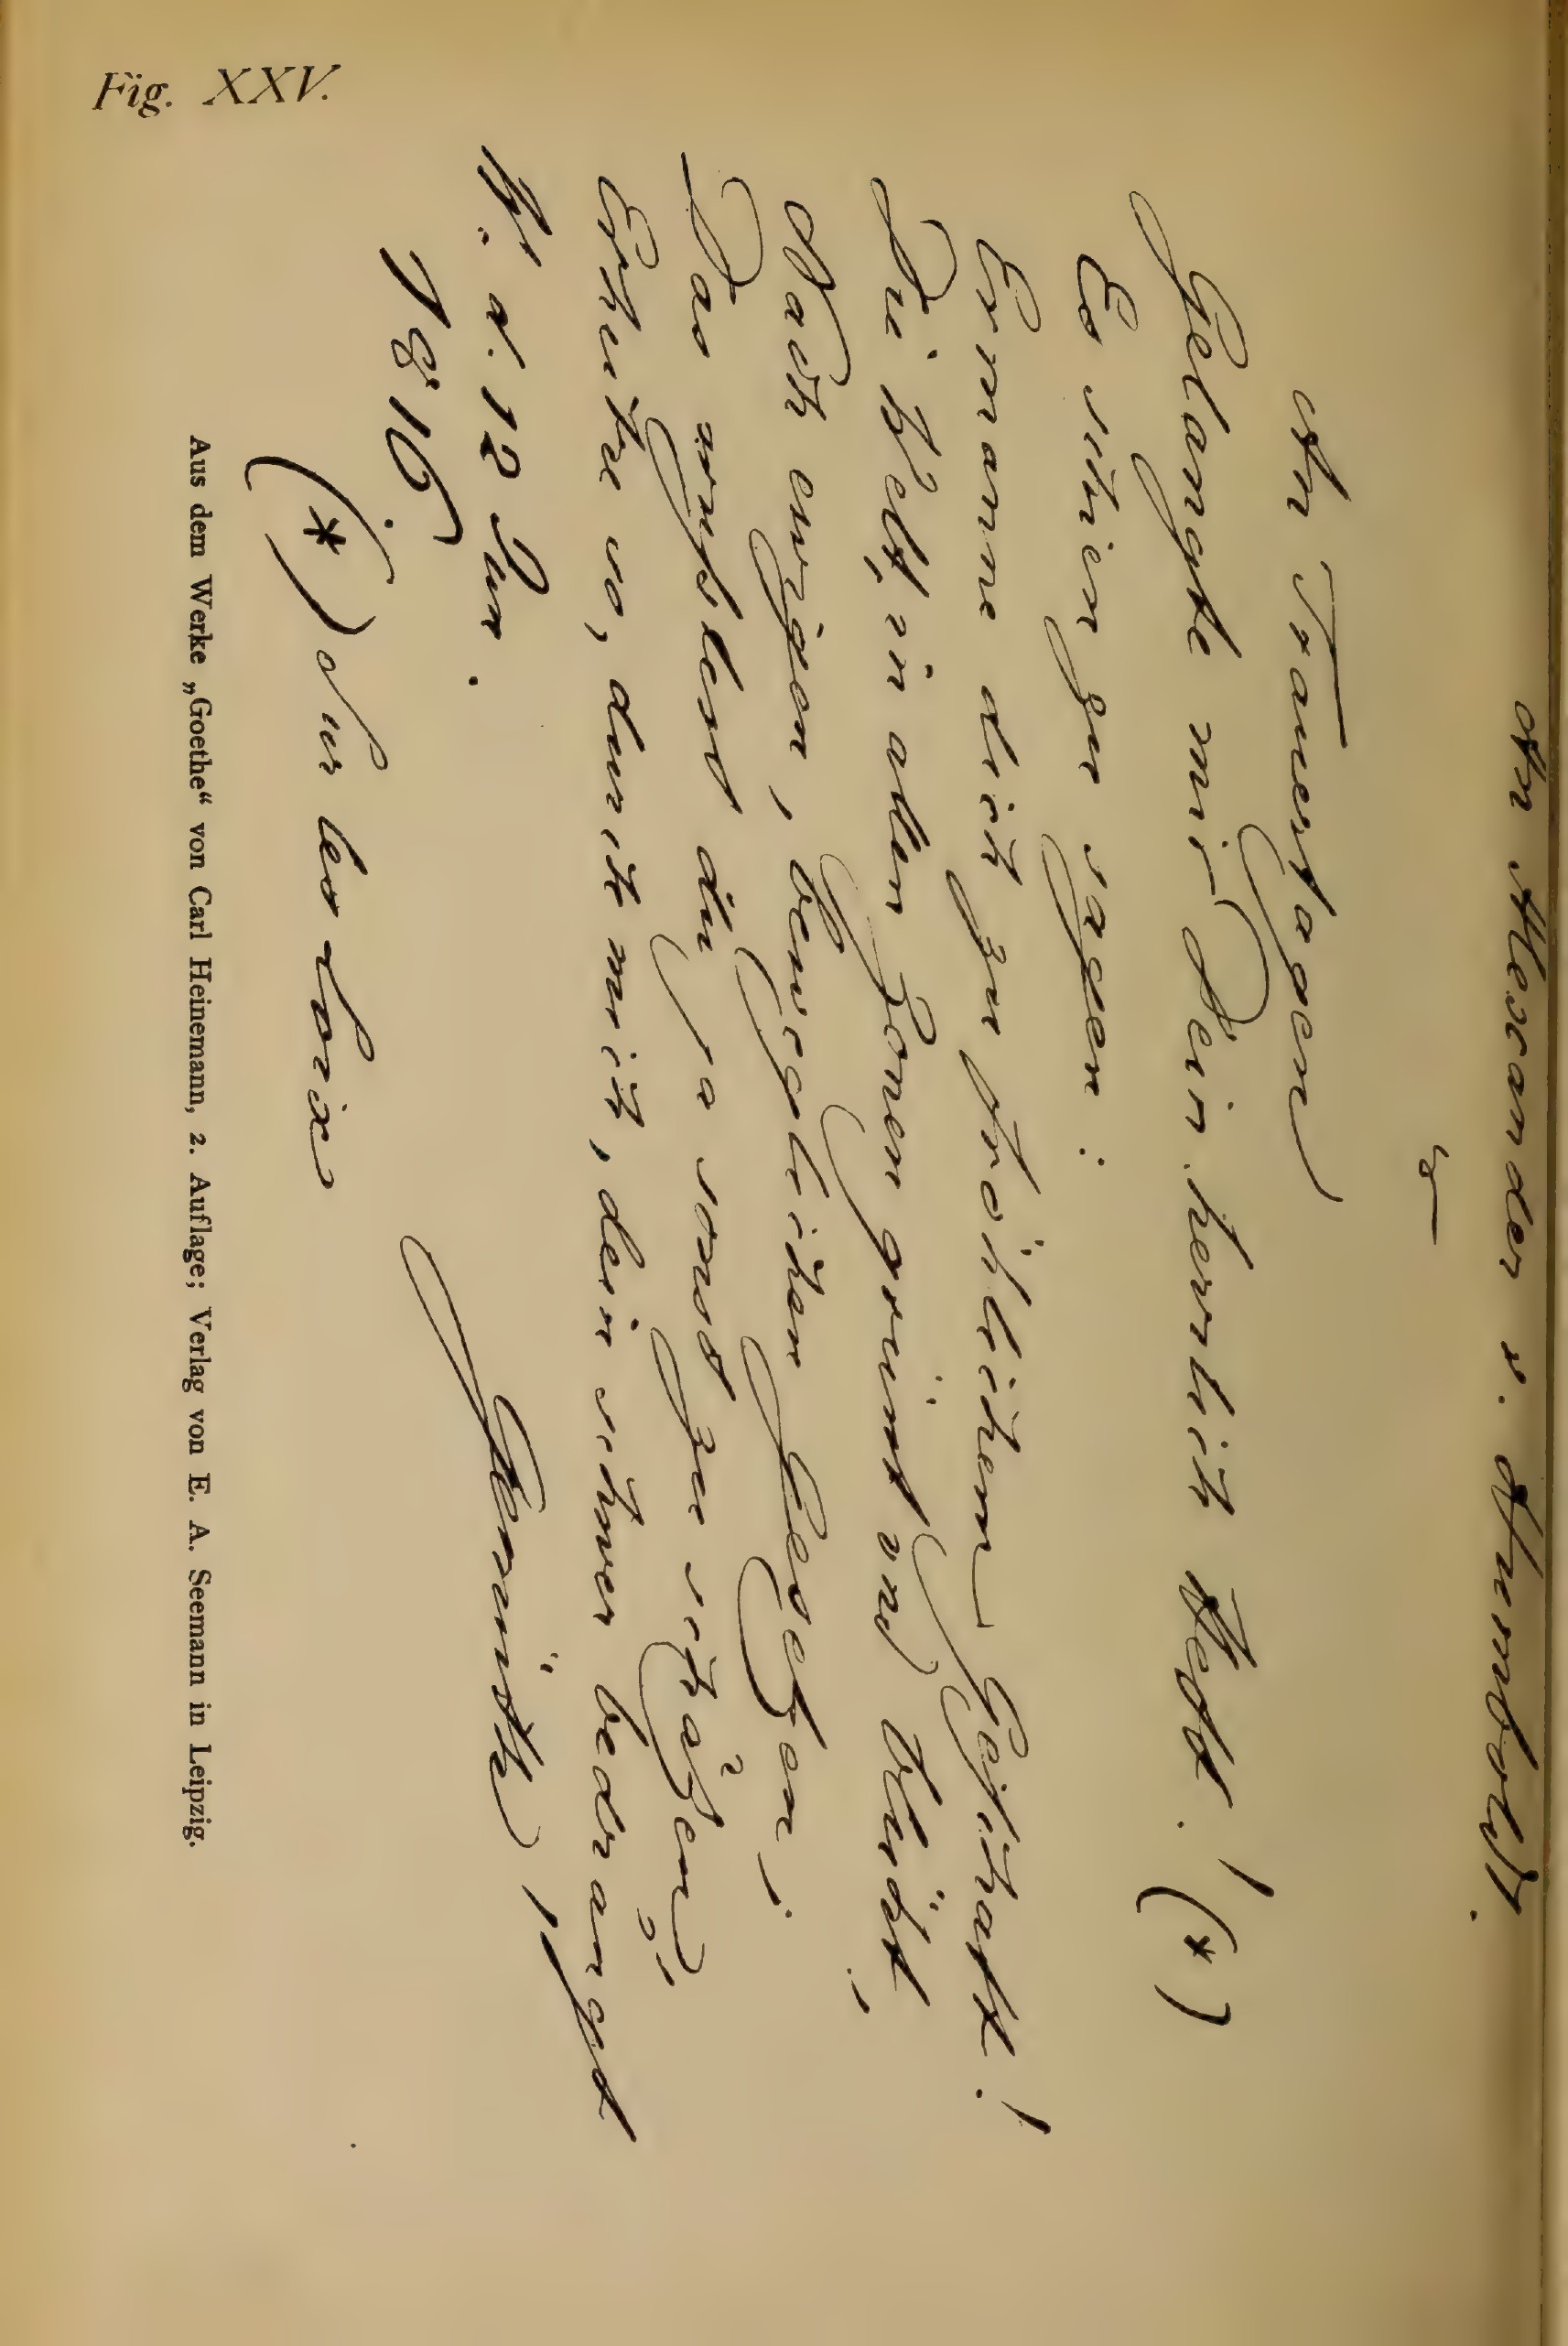 An Alexander v. Humboldt.
An Trauertagen
Gelangte mir Dein herrlich Heft! (*)
Es schien zu sagen:
Ermanne dich zu fröhlichem Geschäft!
Die Welt in allen Zonen grünt und blüht,
Nach ewigen, beweglichen Gesetzen;
Das wußtest du ja sonst zu schätzen,
Erheitre so, durch mich, dein schwer bedrängt
Gemüth,
W. d. 12 Jun.
1816
Goethe
(*) Sur les Loix
Aus dem Werke „Goethe“ von Carl Heinemann, 2. Auflage; Verlag von E. A. Seemann in Leipzig.
Fig. XXV.